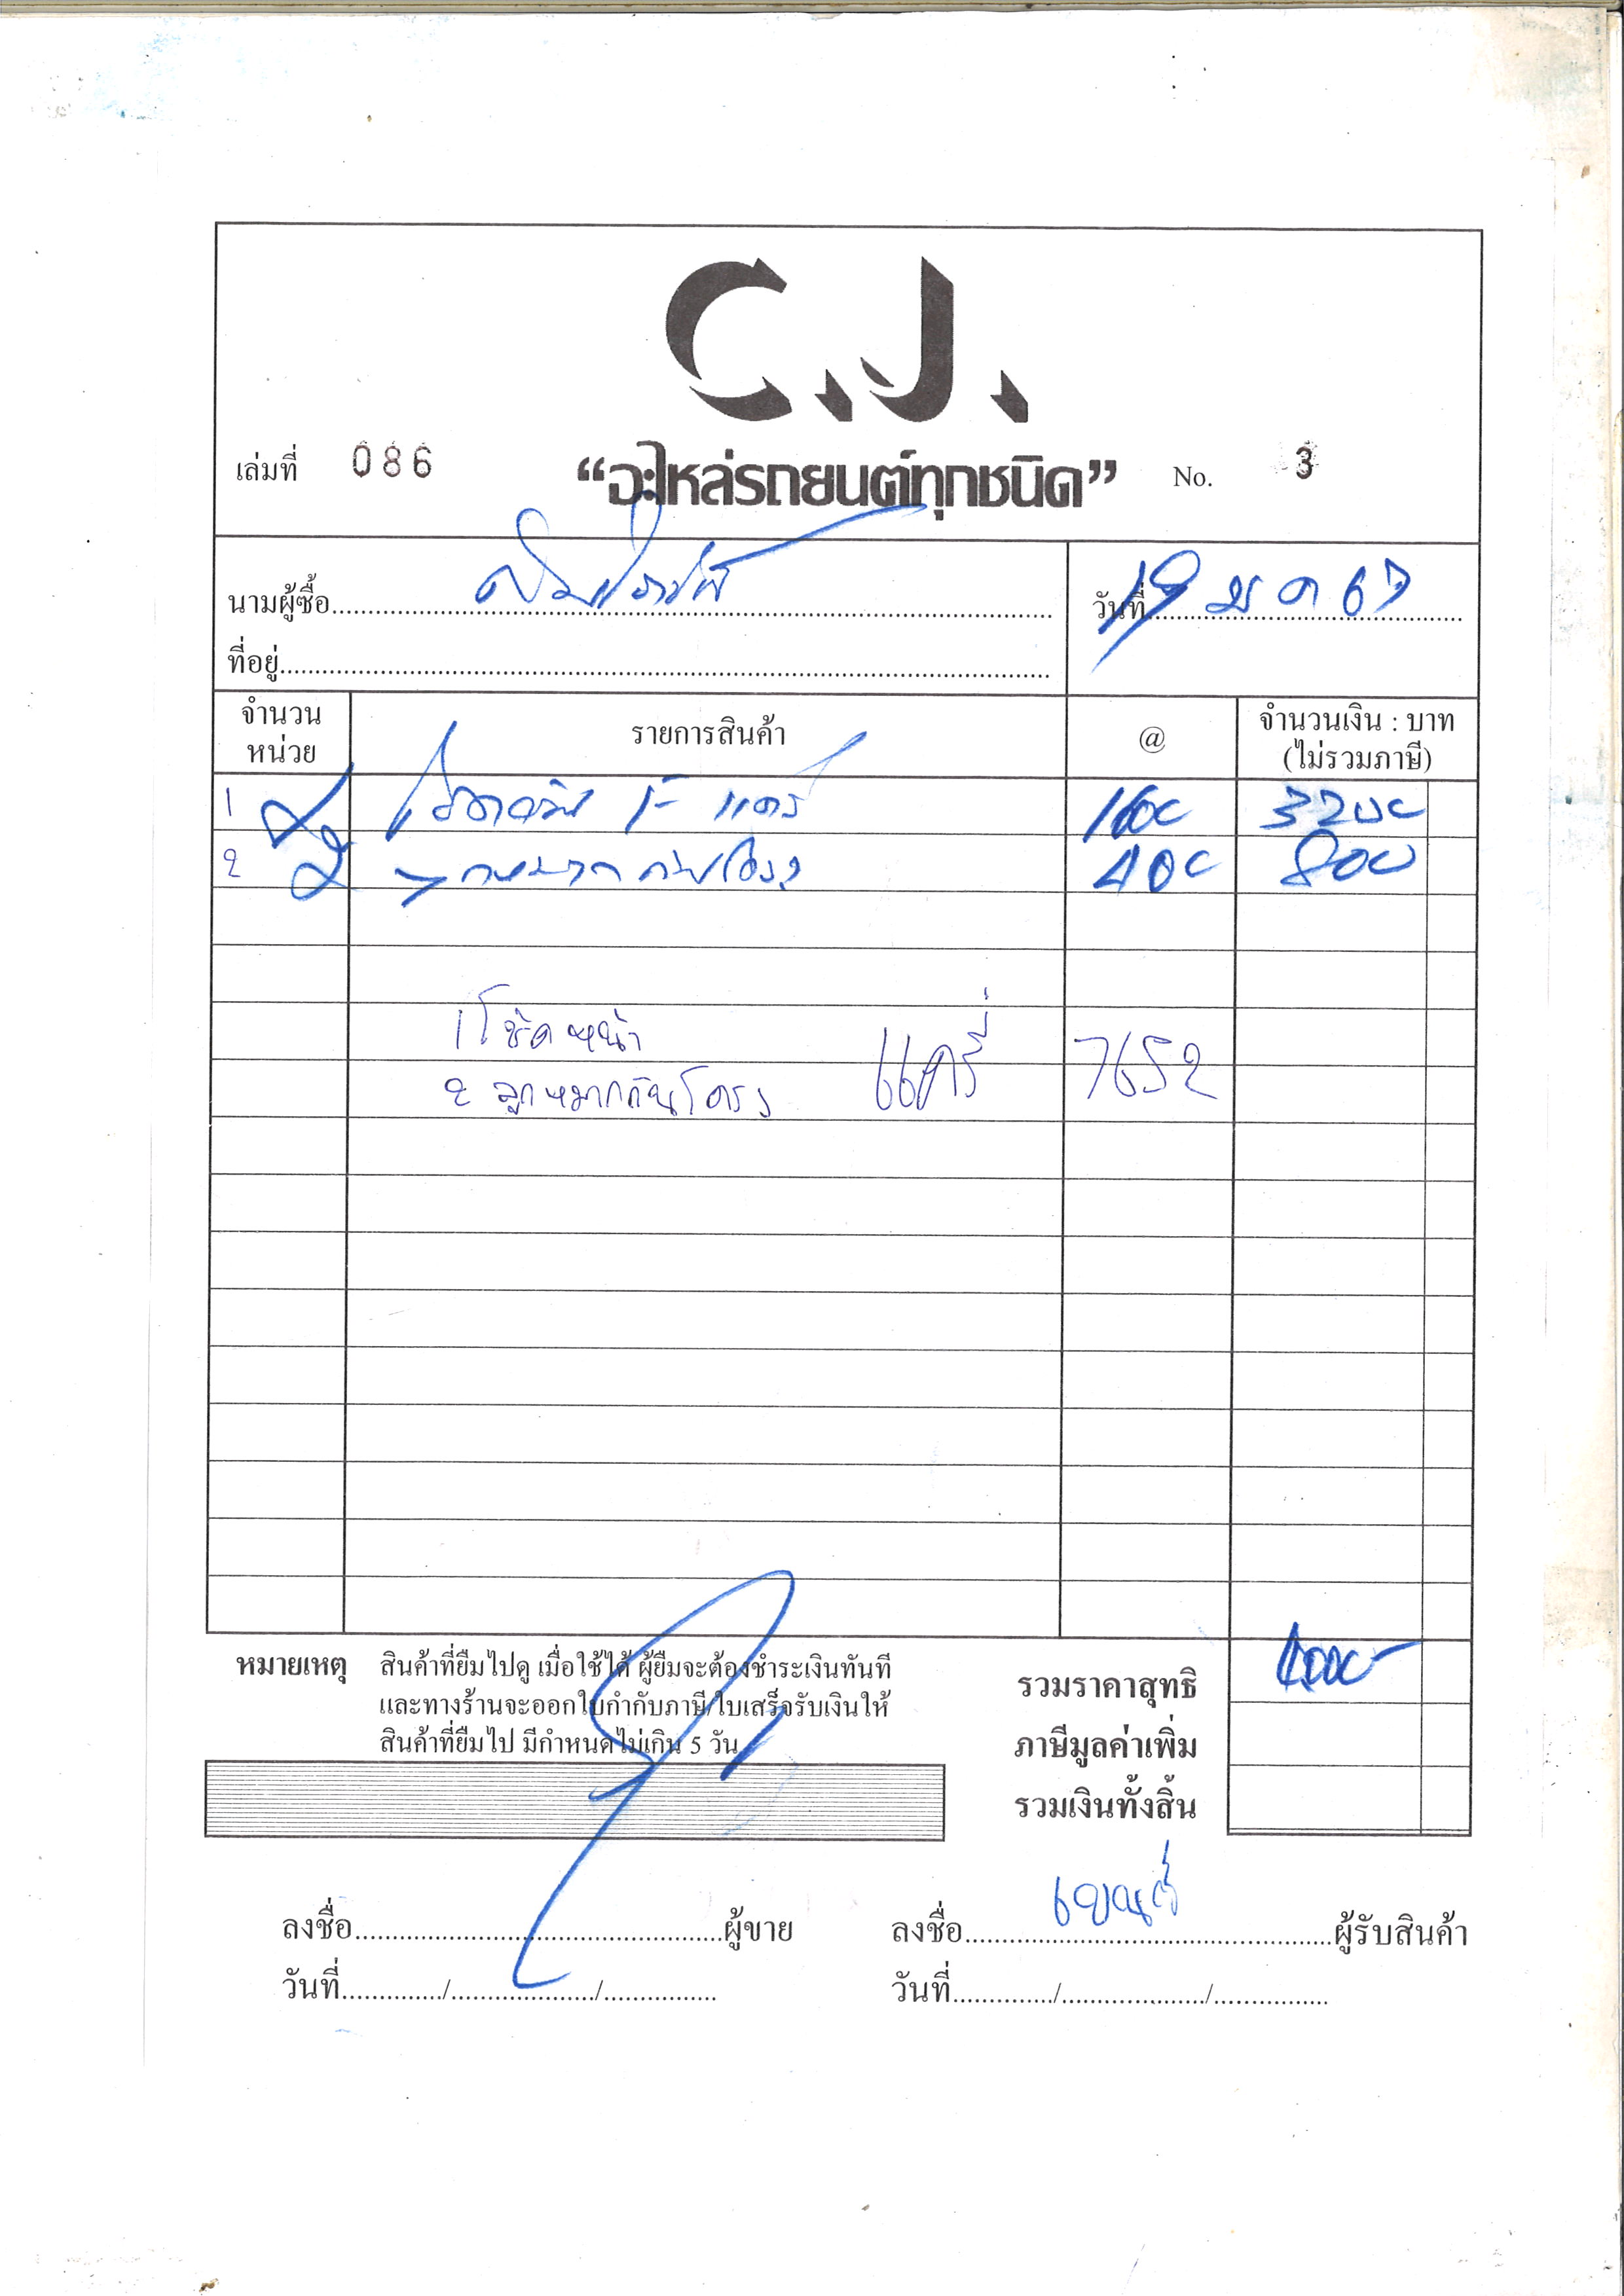 C.J.
เล่มที่ 086 “อะไหล่รถยนต์ทุกชนิด” No. 3
นามผู้ซื้อ
วันที่ 19 มค 67
ที่อยู่
จำนวน หน่วย รายการสินค้า @ จำนวนเงิน : บาท (ไม่รวมภาษี)
1 1600 3200
2 400 800
1 โช๊คหน้า
2 ลูกหมากกันโครง แครี่ 7652
หมายเหตุ สินค้าที่ยืมไปดู เมื่อใช้ได้ ผู้ยืมจะต้องชำระเงินทันที
และทางร้านจะออกใบกำกับภาษี/ใบเสร็จรับเงินให้
สินค้าที่ยืมไป มีกำหนดไม่เกิน 5 วัน
รวมราคาสุทธิ 4000-
ภาษีมูลค่าเพิ่ม
รวมเงินทั้งสิ้น
ลงชื่อ ผู้ขาย ลงชื่อ ผู้รับสินค้า
วันที่ / / วันที่ / /